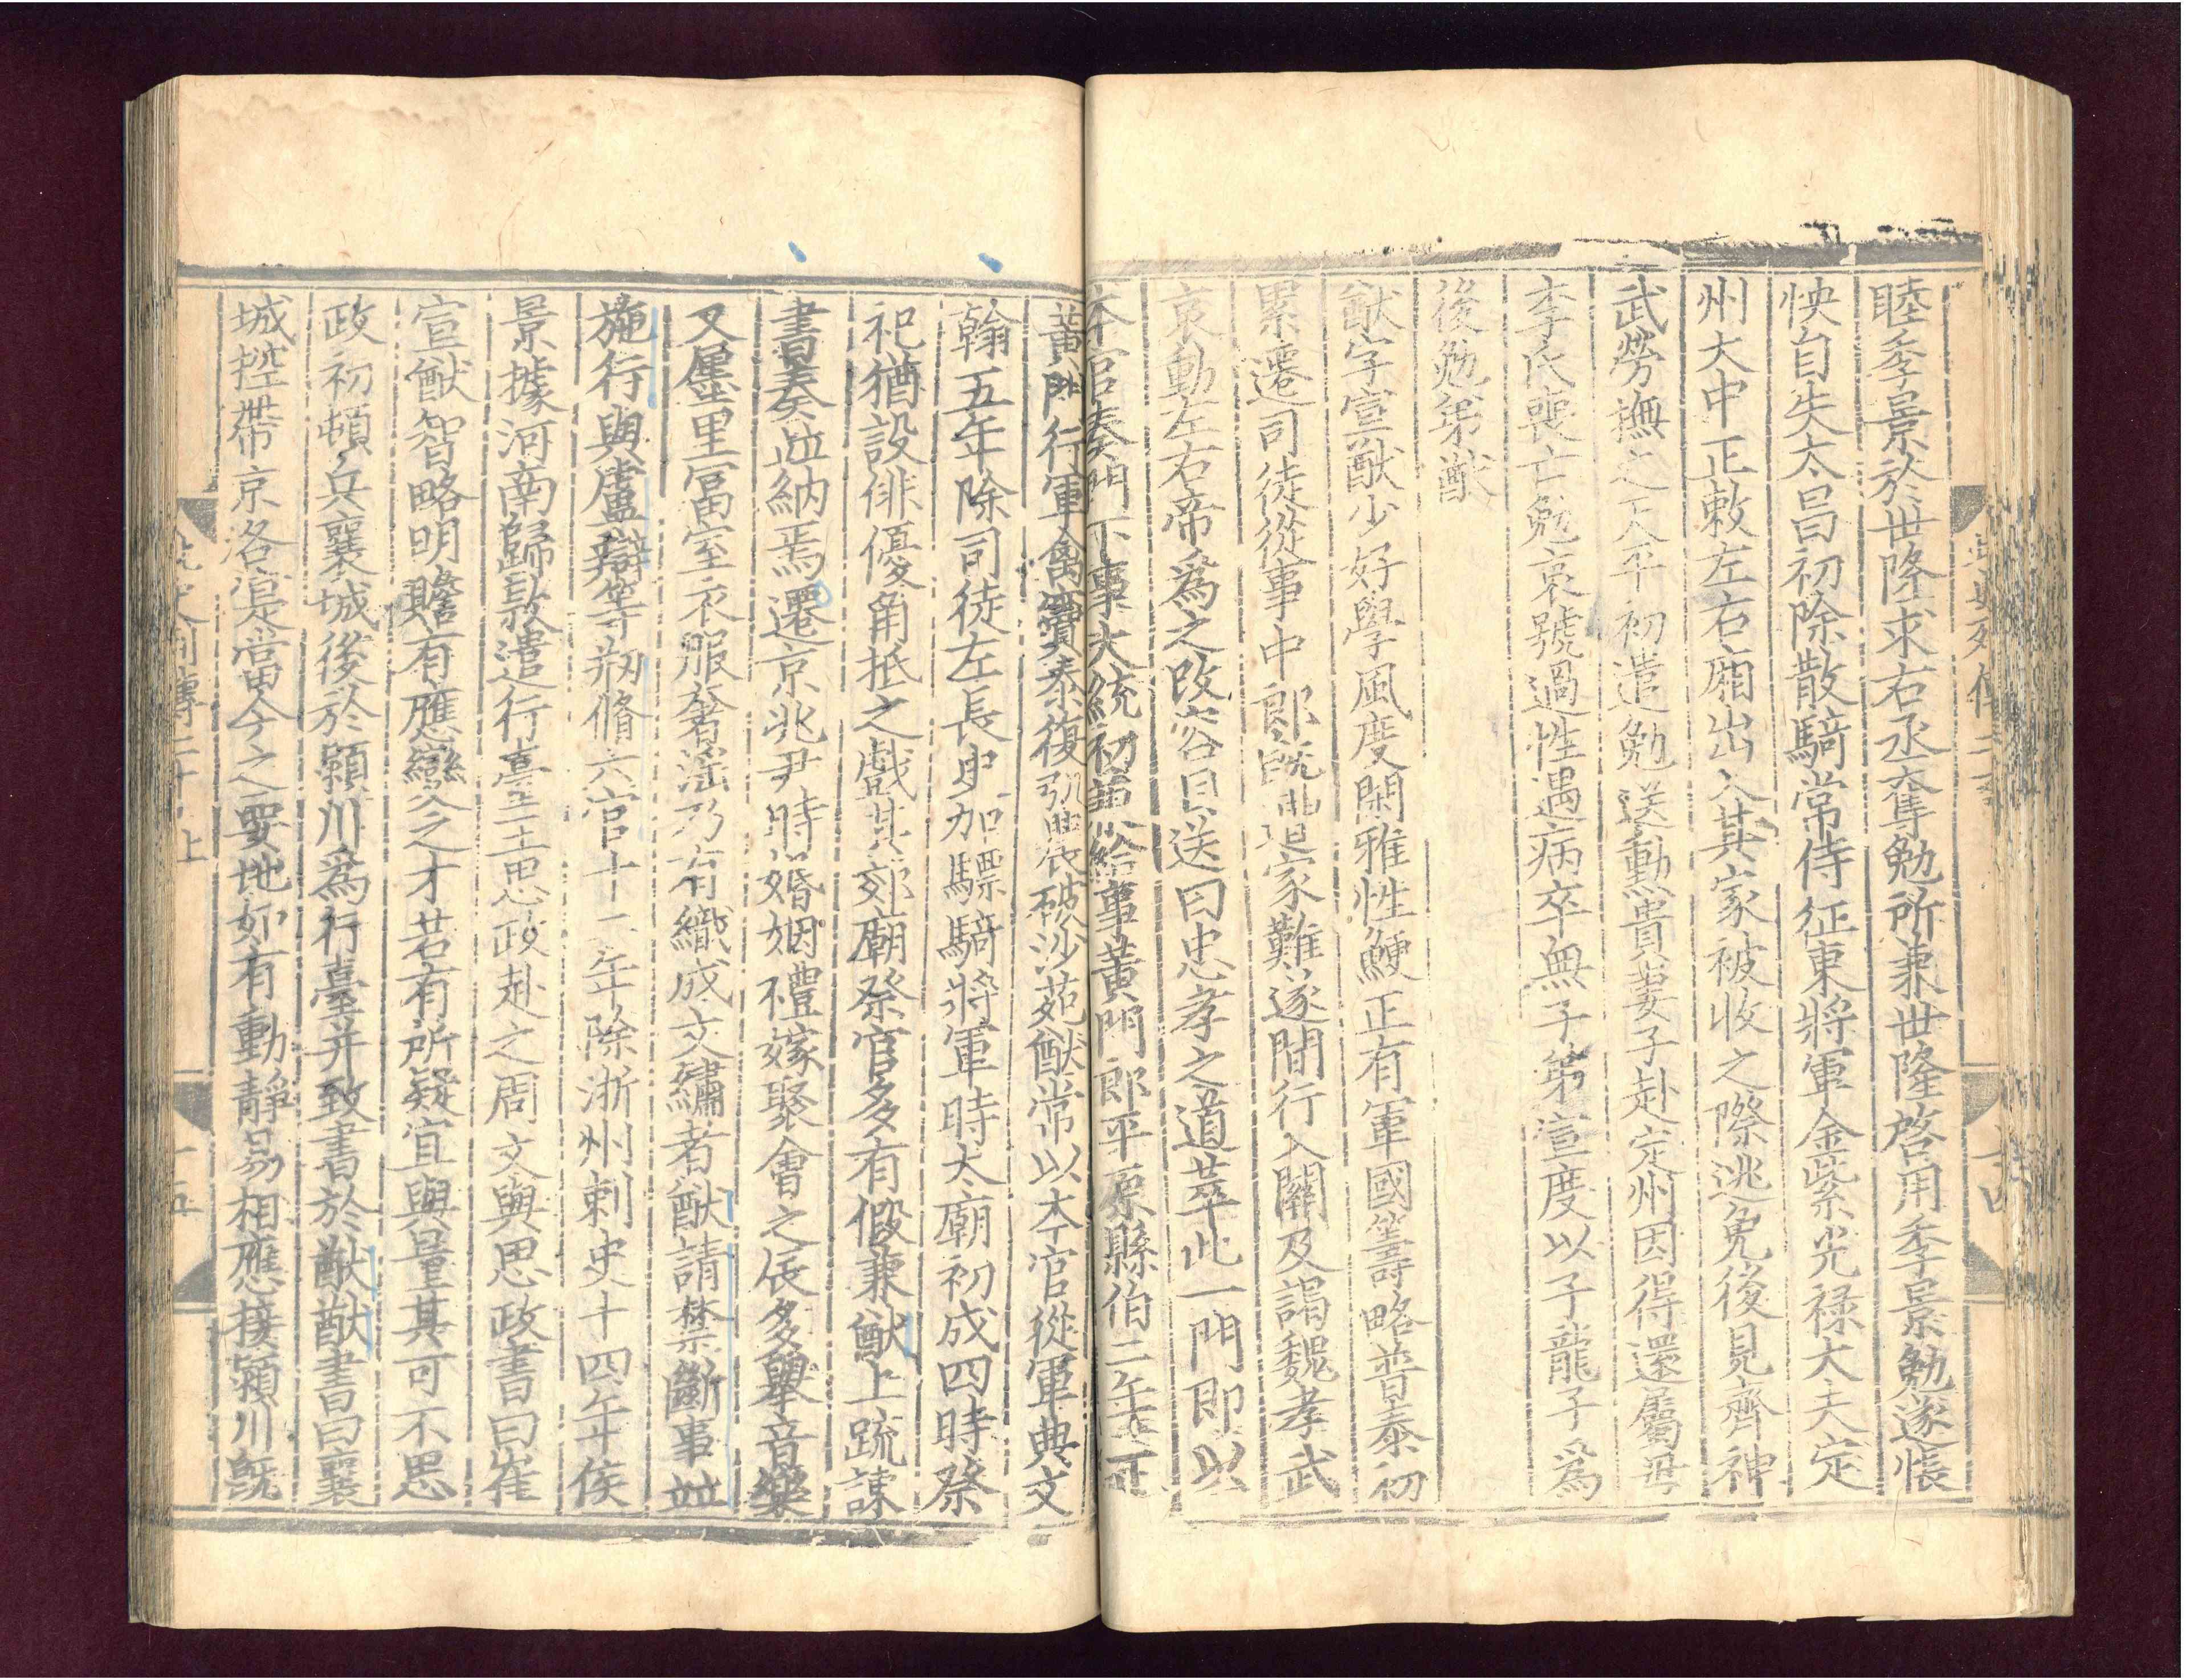 睦季景於世隆求右丞奪勉所兼世隆啓用季景勉遂悵
怏自失太昌初除散騎常侍征東將軍金紫光祿大夫定
州大中正敕左右廂出入其家被收之際逃免後見齊神
武勞撫之天平初遣勉送勳貴妻子赴定州因得還屬母
李氏喪亡勉哀號過性遇病卒無子弟宣度以子龍子爲
後勉弟猷
猷字宣猷少好學風度閑雅性鯁正有軍國籌略普泰初
累遷司徒從事中郎既遭家難遂間行入關及謁魏孝武
哀動左右帝爲之改容目送曰忠孝之道萃此一門即以
本官奏門下事大統初兼給事黃門郎平原縣伯二年正
黃門行軍禽竇泰復弘農破沙苑猷常以本官從軍典文
翰五年除司徒左長史加驃騎將軍時太廟初成四時祭
祀猶設俳優角抵之戲其郊廟祭官多有假兼猷上疏諫
書奏並納焉遷京兆尹時婚姻禮嫁聚會之辰多舉音樂
又廛里富室衣服奢淫乃有織成文繡者猷請禁斷事並
施行與盧辯等刱脩六官十二年除浙州刺史十四年侯
景據河南歸款遣行臺王思政赴之周文與思政書曰崔
宣猷智略明贍有應變之才若有所疑宜與量其可不思
政初頓兵襄城後於潁川爲行臺并致書於猷猷書曰襄
城控帶京洛寔當今之要地如有動靜易相應接潁川既
北史列傳二十 上
十五